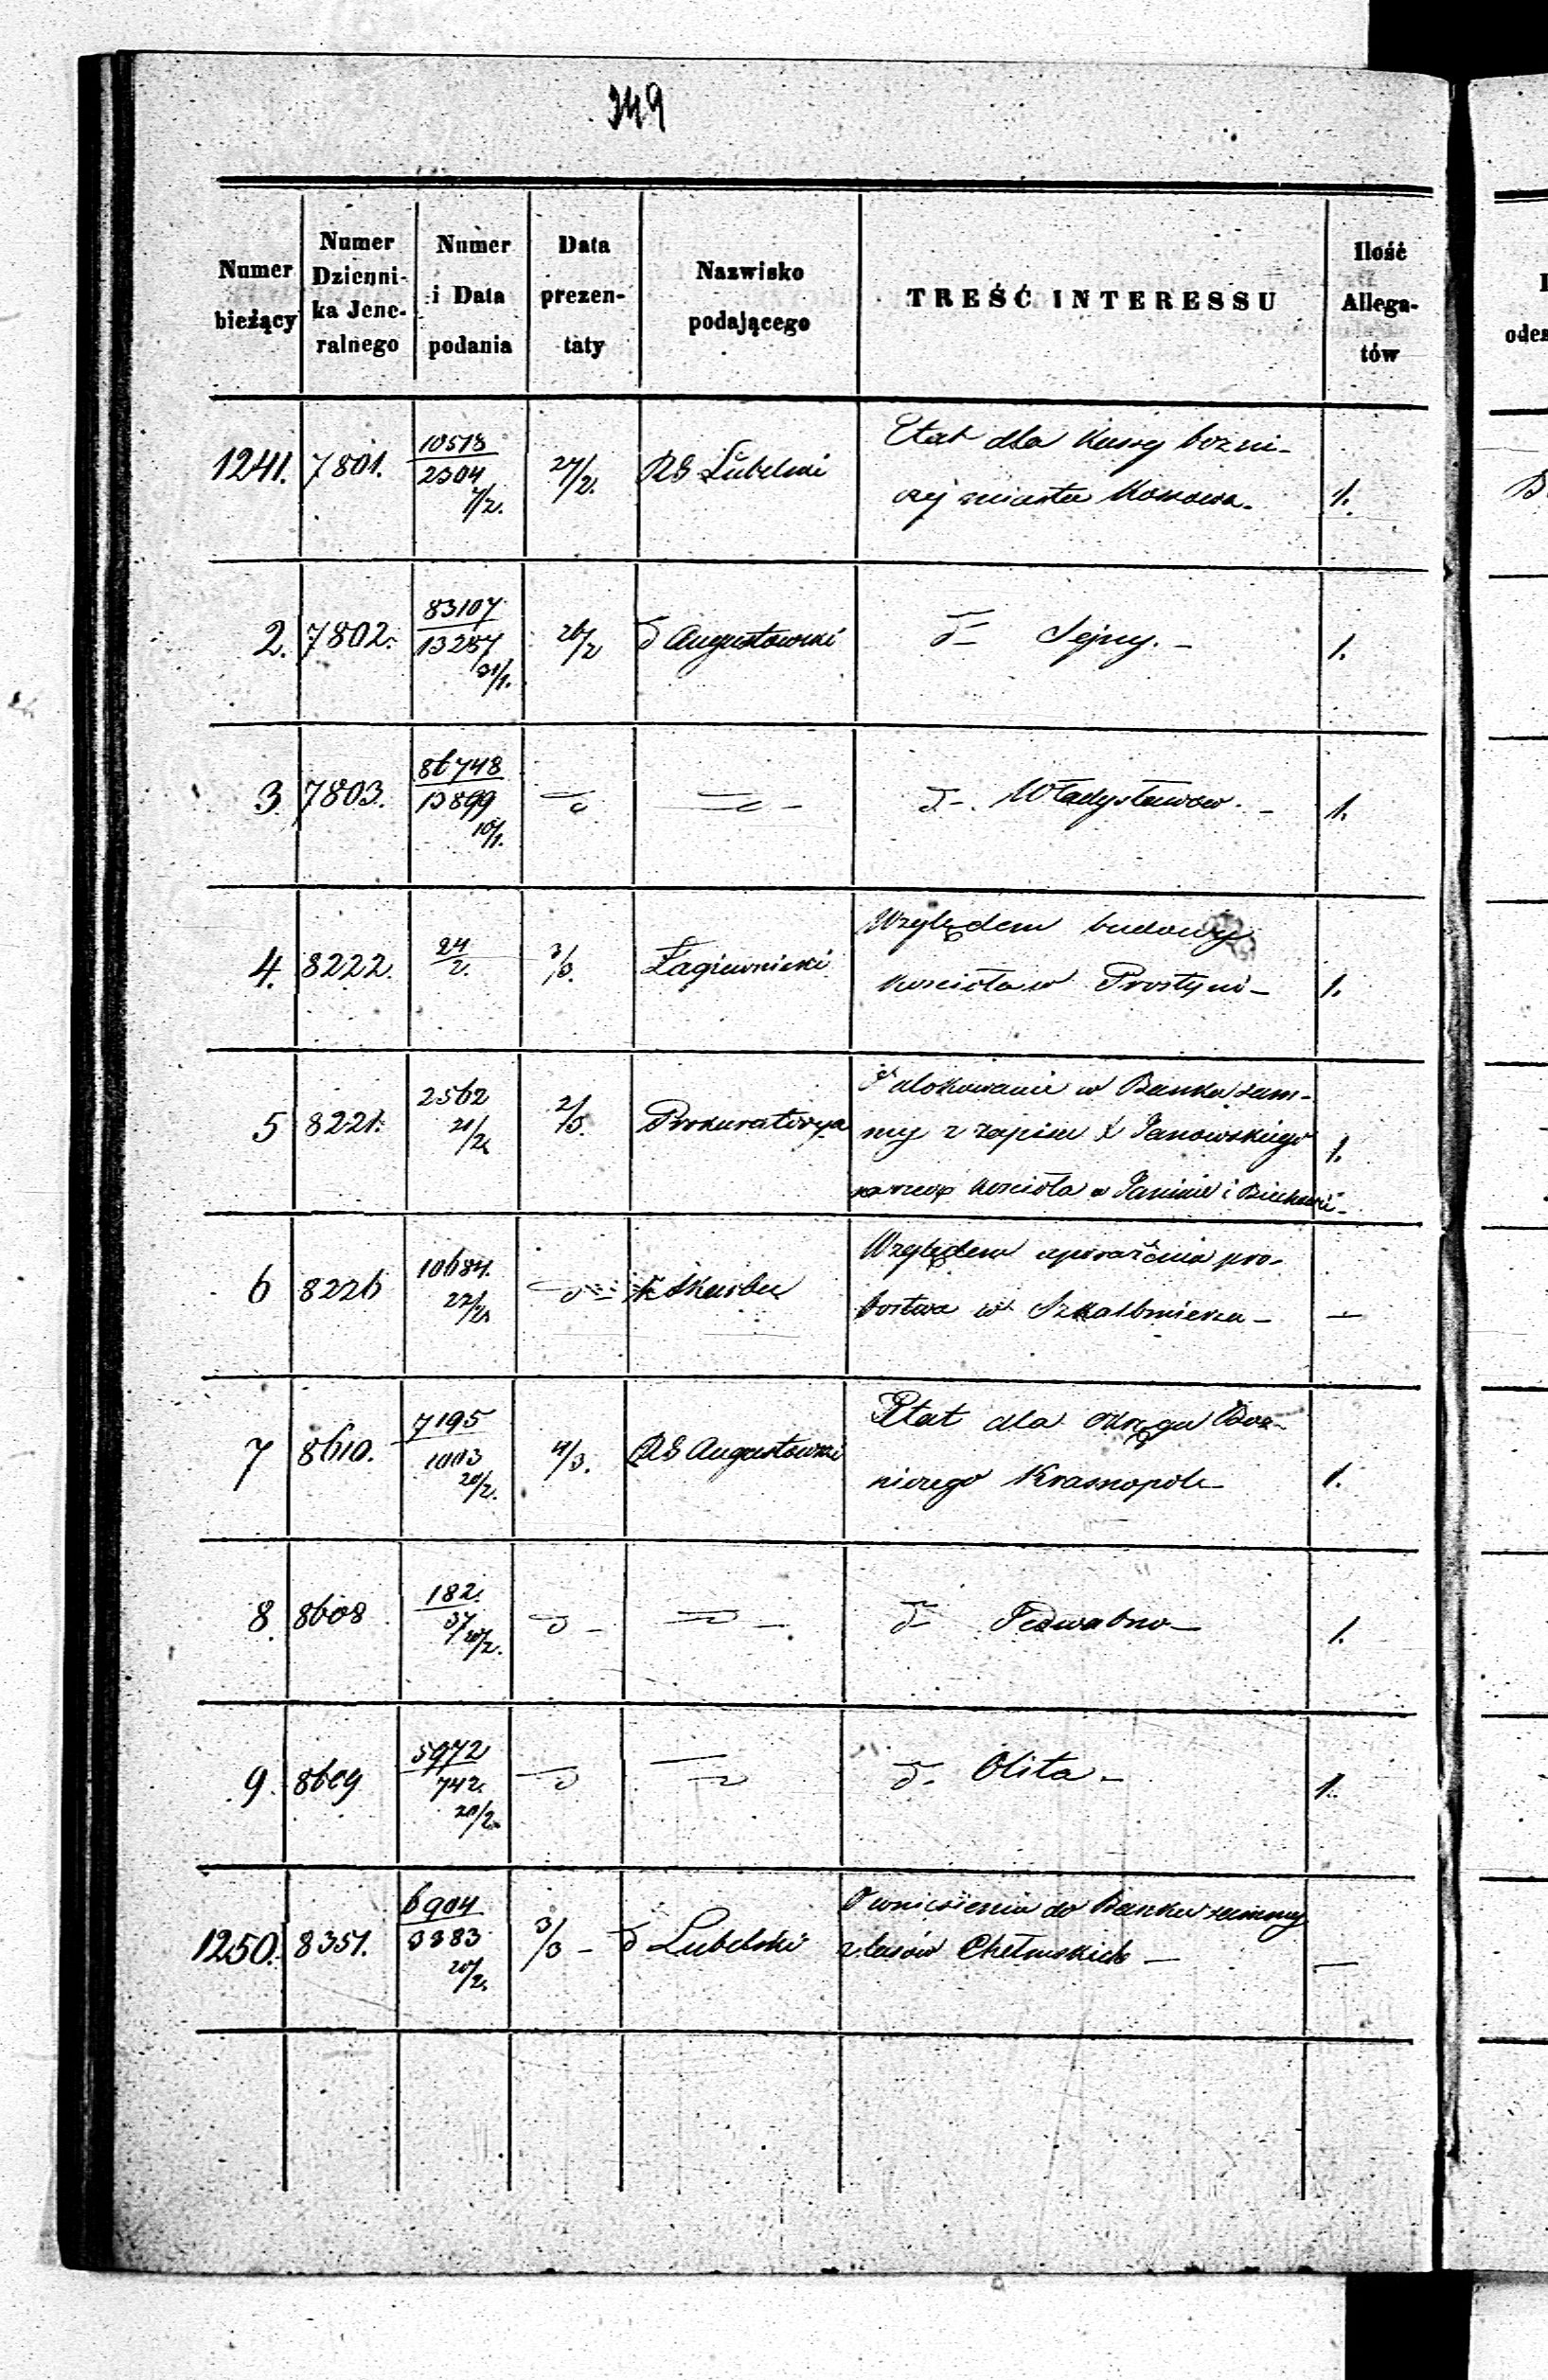 349
Numer bieżący
Numer Dzienni- ka Jene- ralnego
Numer i Data podania
Data prezen- taty
Nazwisko podającego
TREŚĆ INTERESSU
Ilość Allega- tów
1241. 7801. 10518 2304 7/2. 27/2. RG Lubelski Etat dla Kassy bożni-
czej miasta 1.
2. 7802. 83107 13257 31/1. 26/2 d Augustowski d- Sejny. - 1.
3. 7803. 86748 13899 10/1. d - Władysławow. - 1.
4. 8222. 24/2. 3/3. Łagiewnicki Względem budowy
kościoła w Prostyni - 1.
5 8221. 2562 21/2 2/3. Prokuratorya ulokowanie w Banku sum-
my z zapisu X Janowskiego 1.
na rzecz kościoła w Janinie i
6 8226 10684. 22/2 d Skarbu Względem opróżćnia pro-
bostwa w Szkalbmierzu - -
7 8610. 7195 1003 20/2. 4/3. RG Augustowski Etat dla Okręgu Boż-
niczego Krasnopole 1.
8 8608 182. 37 20/2. d - d - d- Jedwabno - 1.
9. 8609 5972 742. 20/2. d d d- Olita - 1.
1250. 8351. 6904 3383 20/2. 3/3 - d Lubelski O wniesieniu do Banku summy
z lasów Chełmskich - -